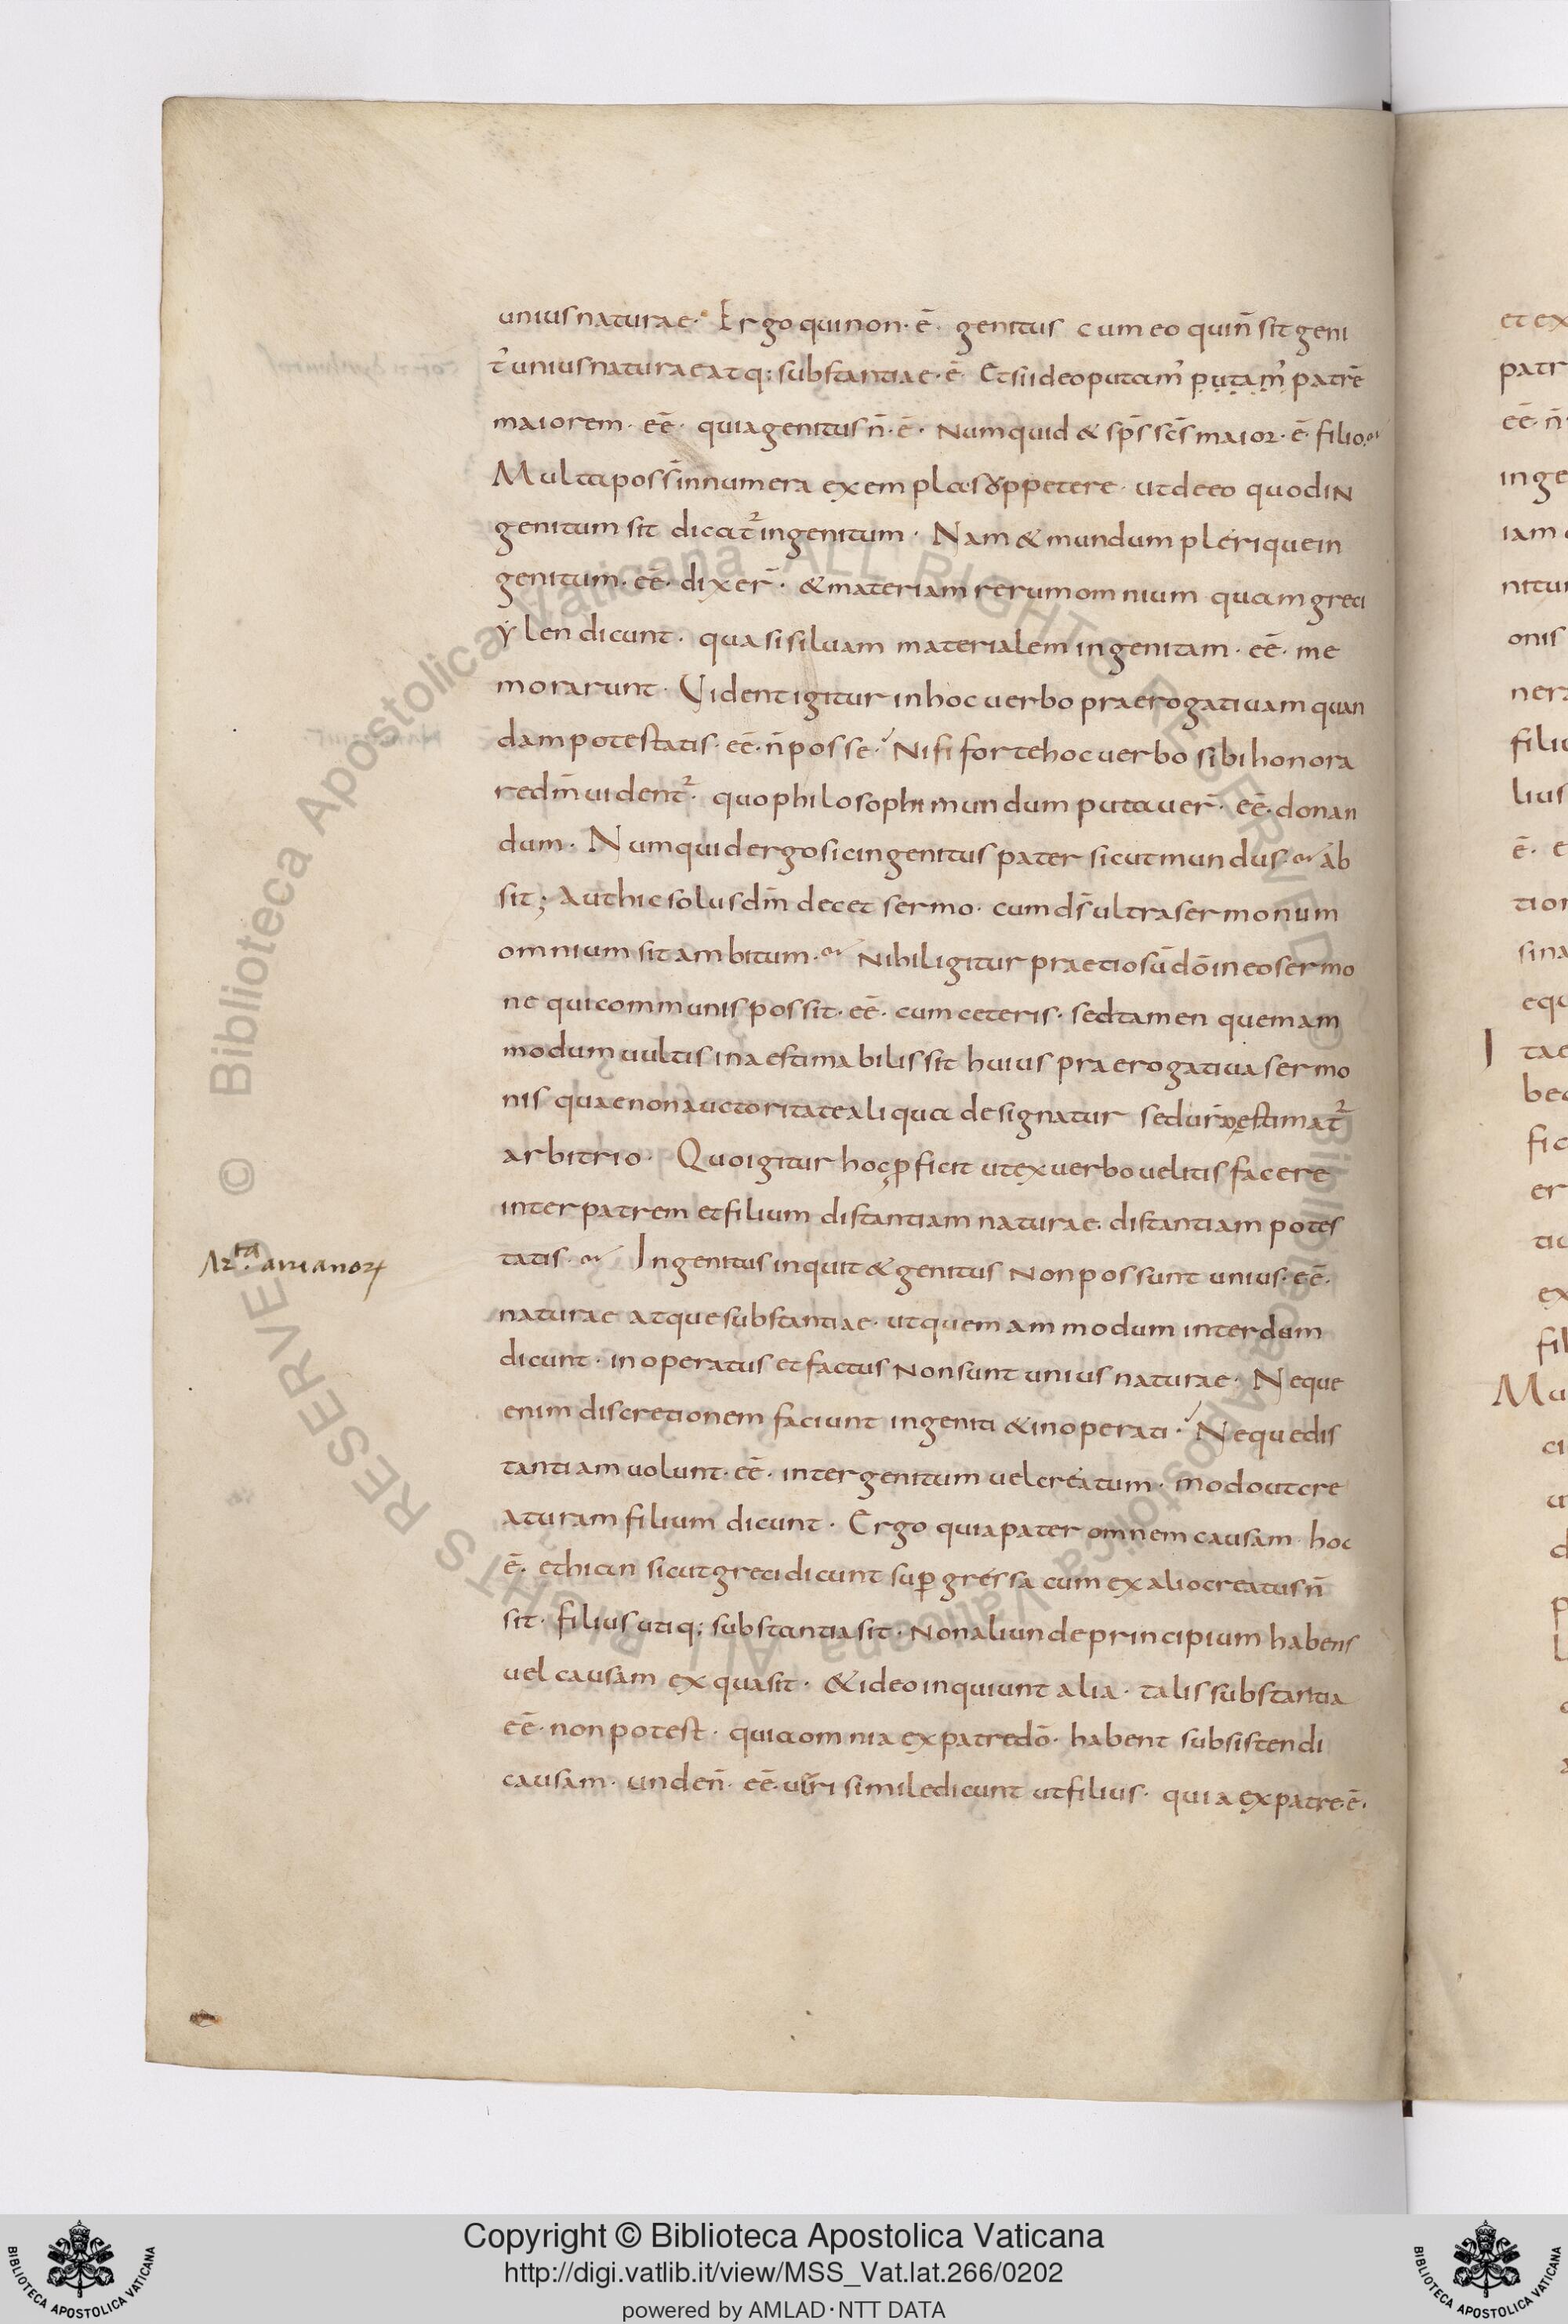 unius naturae. Ergo qui non. ē. genitus cum eo qui n̄ sit geni
t' unius naturae atq; substantiae. ē. Et si ideo putam' putam' patrē
maiorem. eē. quia genitus n̄. ē. Numquid & sp̄s sc̄s maior. ē. filio.
Multa poss innumera exempla suppetere. ut de eo quod in
genitum sit dicat̄ ingenitum. Nam & mundum plerique in
genitum. eē. dixer̄. & materiam rerum omnium quam greci
ẏlen dicunt. quasi siluam materialem ingenitam. eē. me
morarunt. Vident igitur in hoc uerbo praerogatiuam quan
dam potestatis. eē. n̄ posse. Nisi forte hoc uerbo sibi honora
re dm̄ uident̄. quo philosophi mundum putauer̄. eē. donan
dum. Numquid ergo sic ingenitus pater sicut mundus. ab
sit; Aut hic solus dm̄ decet sermo. cum ds̄ ultra sermonum
omnium sit ambitum. Nihil igitur praetiosū dō in eo sermo
ne qui communis possit. eē. cum ceteris. sed tamen quemam
modum uultis inaestimabilis sit huius praerogatiua sermo
nis quae non auctoritate aliqua designatur sed ur̄o estimat̄
arbitrio. Quo igitur hoc ꝓficit ut ex uerbo uelitis facere
inter patrem et filium distantiam naturae. distantiam potes
tatis. Ingenitus inquit & genitus Non possunt unius. eē.
Ar.ta arrianorꝝ
naturae atque substantiae. ut quemammodum interdum
dicunt. inoperatus et factus Non sunt unius naturae. Neque
enim discretionem faciunt ingeniti & inoperati. Neque dis
tantiam uolunt. eē. inter genitum uel creatum. modo ut cre
aturam filium dicunt. Ergo quia pater omnem causam. hoc
ē. ethian sicut greci dicunt suꝑgressa cum ex alio creatus n̄
sit. filius utiq; substantia sit. Non aliunde principium habens
uel causam ex qua sit. & ideo inquiunt alia. talis substantia
eē. non potest. quia omnia ex patre dō. habent subsistendi
causam. unde n̄. eē. uir̄i simile dicunt ut filius. quia ex patre. ē.
Copyright © Biblioteca Apostolica Vaticana
http://digi.vatlib.it/view/MSS_Vat.lat.266/0202
powered by AMLAD·NTT DATA